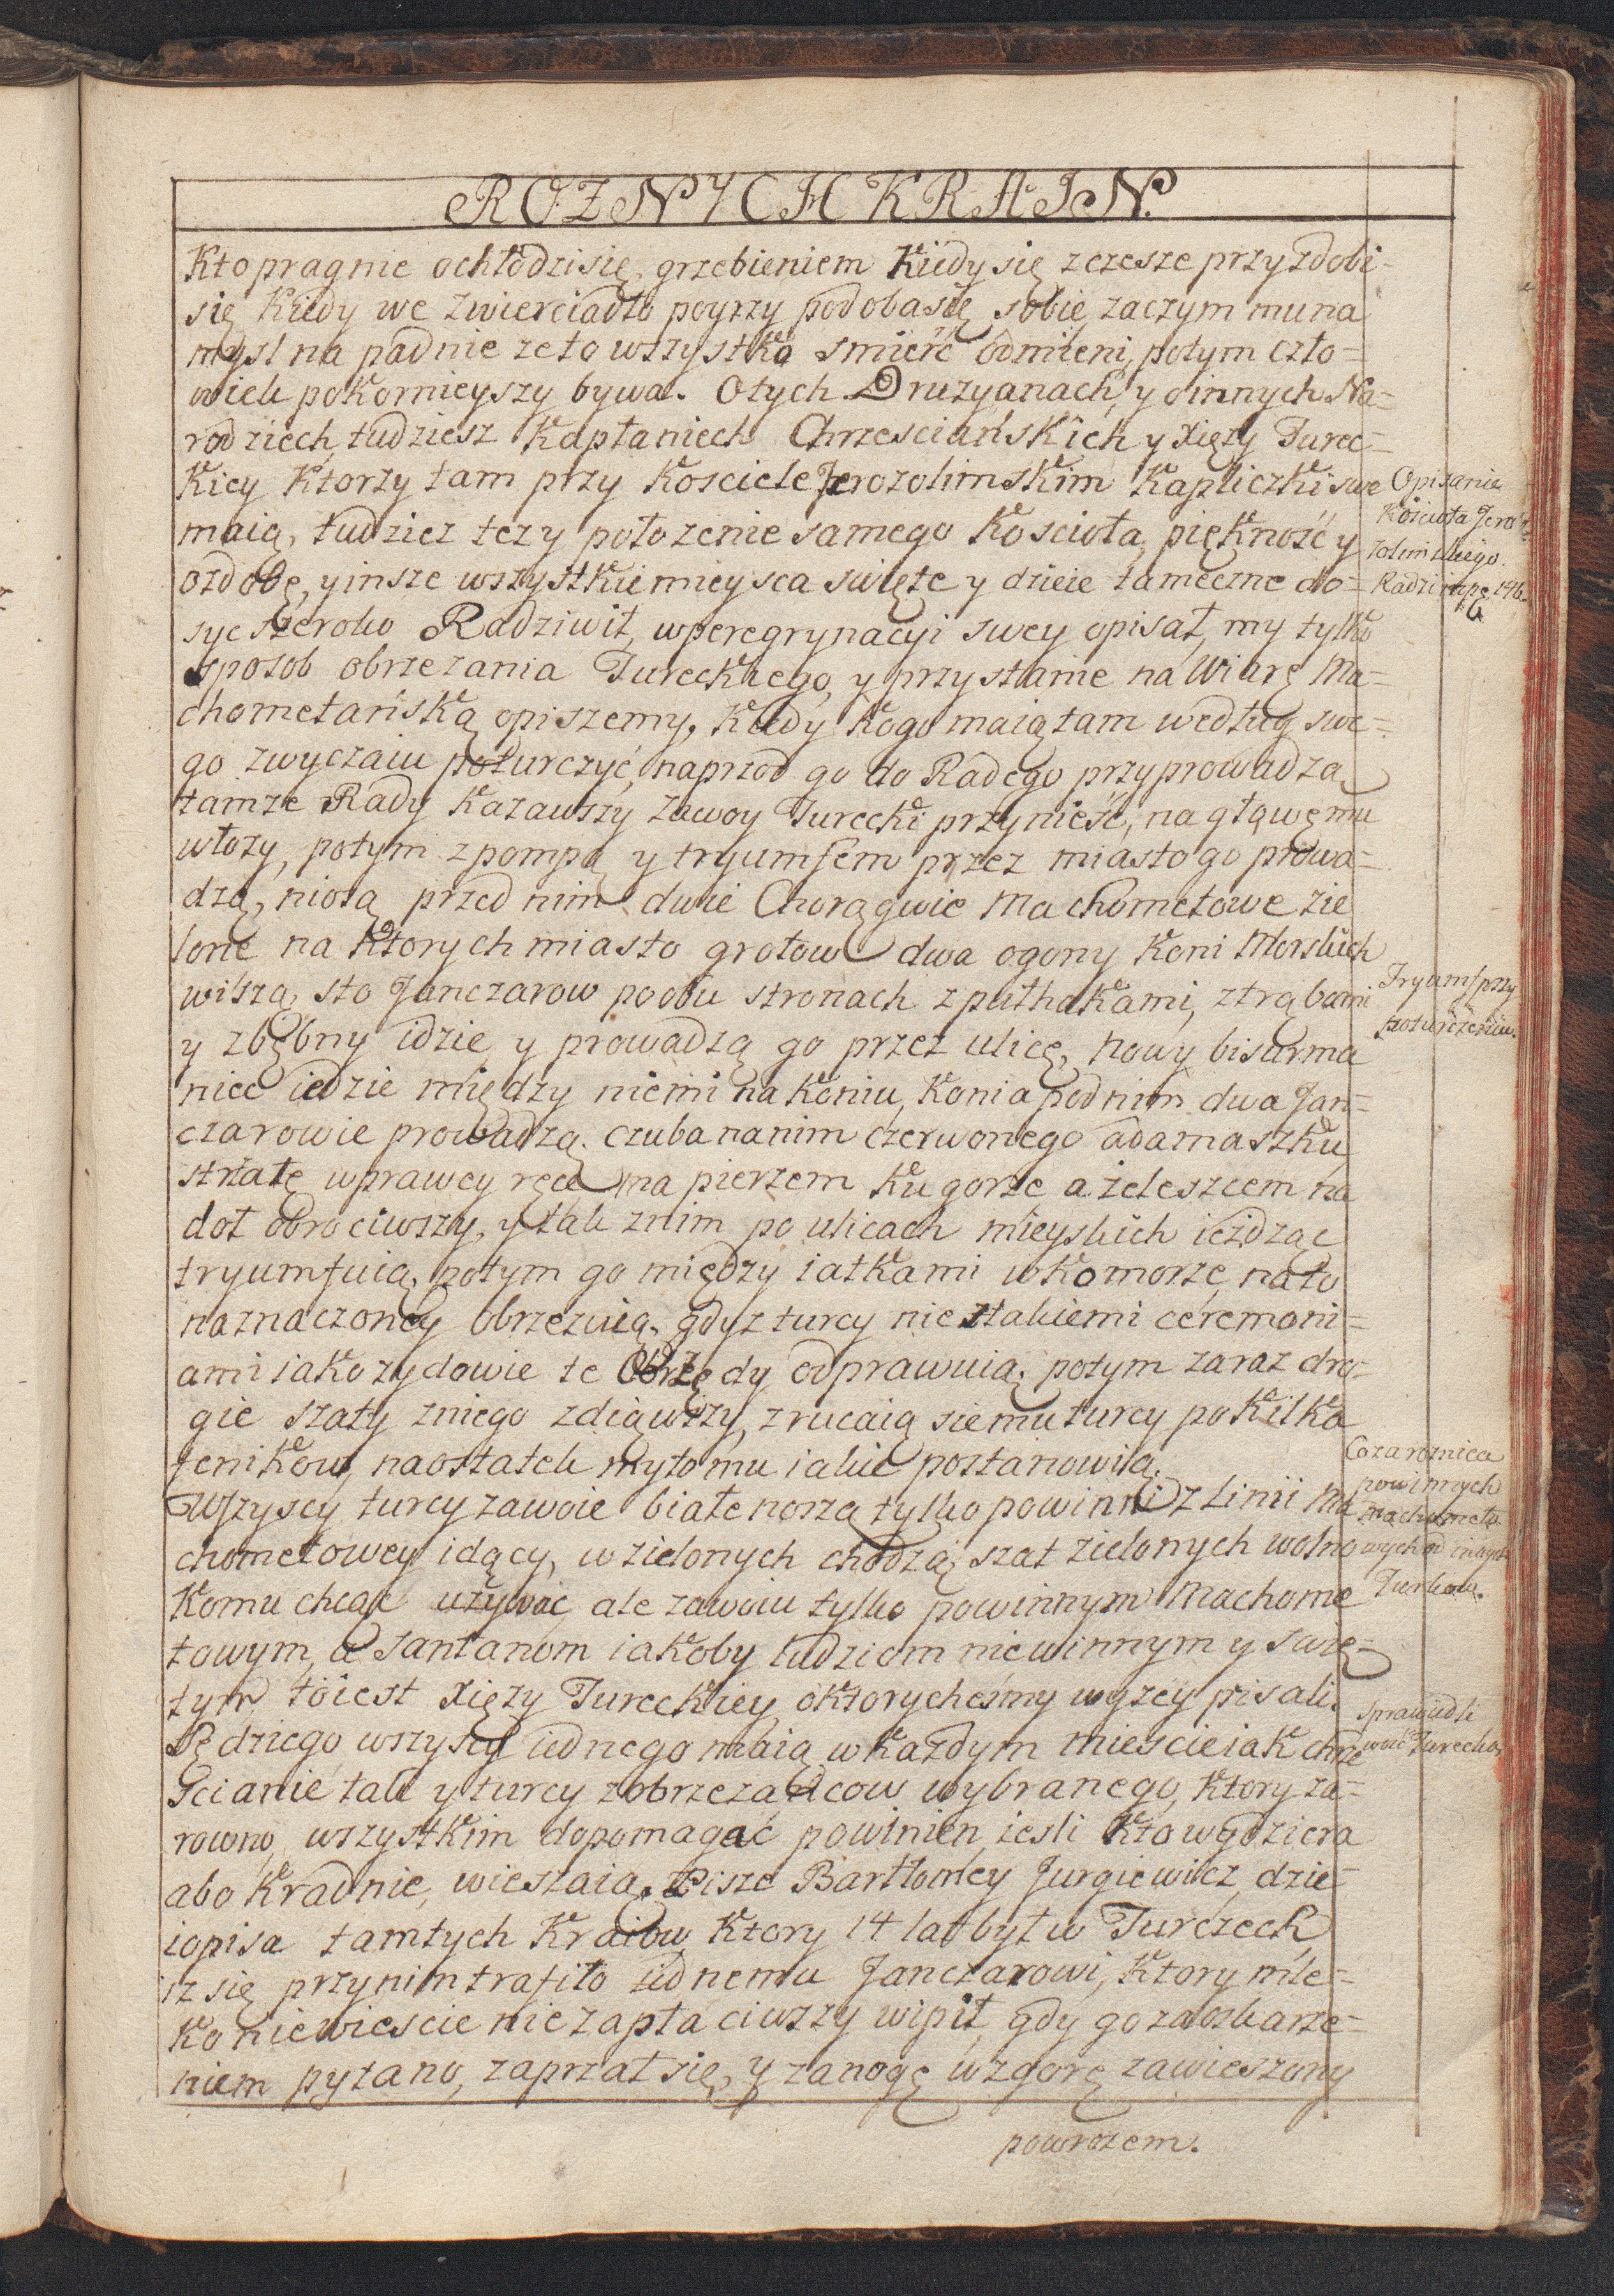 ROZNYCH KRAIN.
Kto pragnie ochłodzi się, grzebieniem Kiedy się zczesze przyzdobi-
się Kiedy we zwierciadło poyrzy podoba się sobie zaczym mu na
mysl na padnie ze to wszystko smierć odmieni, potym czło=
wiek pokornieyszy bywa. O tych Druzyanach, y o innych Na=
rodziech, tudziesz Kapłaniech Chrzesciańskich y xięzy Turec=
Kiey Ktorzy tam przy Kosciele Jerozolimskim Kapliczki swe
maią, tudziez tez y połozenie samego Koscioła, piękność y
ozdobę, y insze wszystkie mieysca swięte y dzieie tameczne do=
syc szeroko Radziwił, w peregrynacyi swey opisał, my tylko
sposob obrzezania Tureckiego, y przystanie na Wiarę Ma=
chometańską opiszemy, Kiedy Kogo maią tam według swe=
go zwyczaiu poturczyć, naprzod go do Radego przyprowadzą
tamze Rady Kazawszy Zawoy Turecki przynieść, na głąwę mu
włozy, potym z pompą y tryumfem przez miasto go prowa=
dzą, niosą przed nim dwie Chorągwie Machometowe zie
lone na Ktorych miasto grotow dwa ogony Koni Morskich
wiszą, sto Janczarow po obu stronach z pułhakami, z trąbami
y z bębny idzie y prowadzą go przez ulicę, nowy bisurma
niec iedzie między niemi na Koniu, Konia pod nim dwa Jan=
czarowie prowadzą. czuba na nim czerwonego adamaszku,
strzałę w prawey ręce ma pierzem Ku gorze a żeleszcem na
doł obrociwszy, y tak z nim po ulicach mieyskich ieżdząc
tryumfuią, potym go między iatkami w Komorze, na to
naznaczoney obrzezuią. gdyz turcy nie z takiemi ceremoni=
ami iako zydowie te Obrzędy odprawuią, potym zaraz dro=
gie szaty z niego zdiąwszy, zrucaią sie mu turcy po Kilka
fenikow, na ostatek myto mu iakie postanowią.
Wszyscy turcy zawoie białe noszą tylko powinni z Linii Ma
chometowey idący, w zielonych chodzą, szat zielonych wolno
Komu chcąc używać, ale zawoiu tylko powinnym Machome
towym, a Santanom iakoby ludziom niewinnym y swię=
tym to iest xięzy Tureckiey, o Ktorychesmy wyzey pisali.
Sędziego wszyscy iednego maią w Każdym miescie iak chrze
scianie tak y turcy z obrzezańcow wybranego, Ktory za=
rowno wszystkim dopomagać powinien, iesli Kto wydziera
abo Kradnie, wieszaią. Pisze Bartłomiey Jurgiewicz, dzie=
iopisa tamtych Kraiow, Ktory 14 lat był w Turczech
iz się przy nim trafiło iednemu Janczarowi, Ktory mle=
Ko niewiescie nie zapłaciwszy wipił, gdy go za oskarze=
niem pytano, zaprzał się, y za nogę wzgorę zawieszony
powrozem.
Opisanie
Koscioła Jero
zolimskiego.
Radzi: w pe: 146.
Tryumf przy
poturczeniu.
Coza roznica
powinnych
Machometo
wych od innych
Turkow.
sprawiedli
wość Turecka